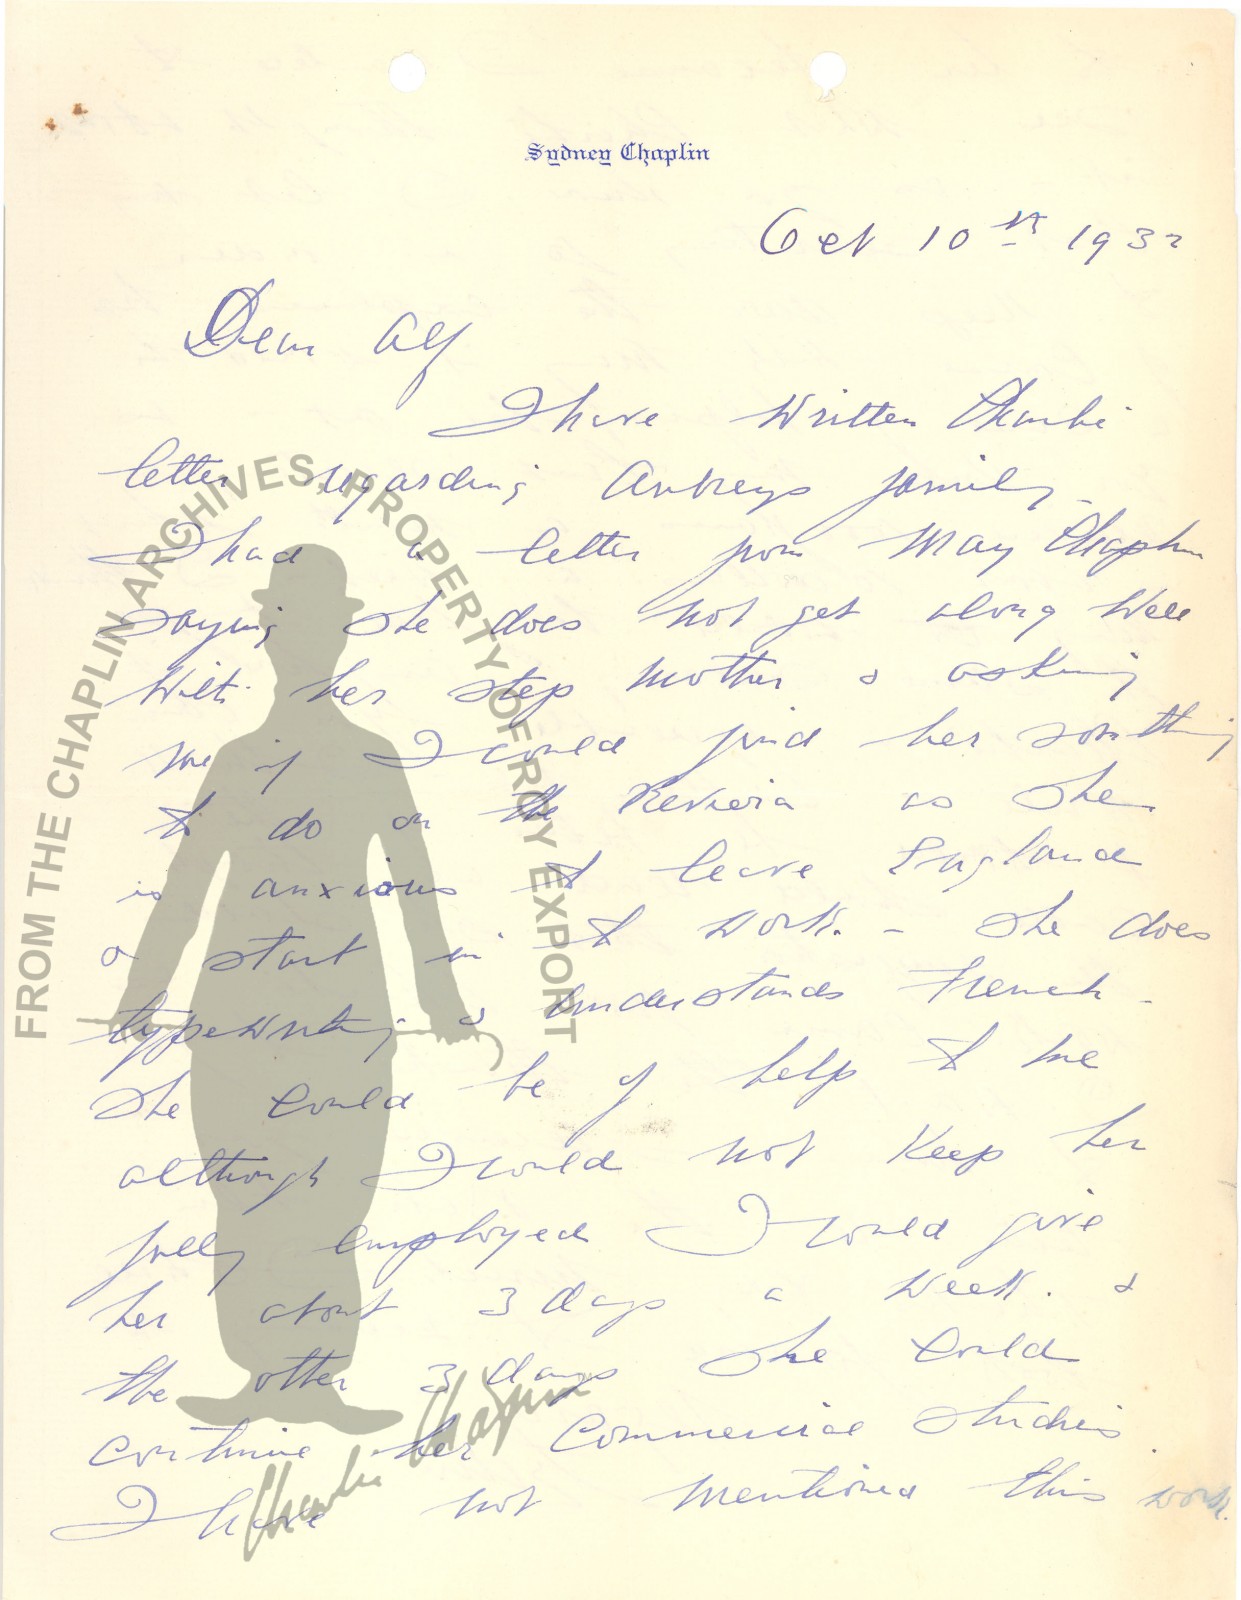 Sydney Chaplin
Oct 10th 1932
Dear Alf
I have written Charlie
letter regarding Aubreys family -
I had a letter from May Chaplin
saying she does not get along well
with her step mother & asking
me if I could find her something
to do on the Reviera as she
is anxious to leave England
& start in to work. - She does
typewriting & understands French -
She could be of help to me
although I could not keep her
fully employed I could give
her about 3 days a week. &
the other 3 days she could
continue her commercial studies.
I have not mentioned this work.
FROM THE CHAPLIN ARCHIVES, PROPERTY OF ROY EXPORT
Charlie Chaplin